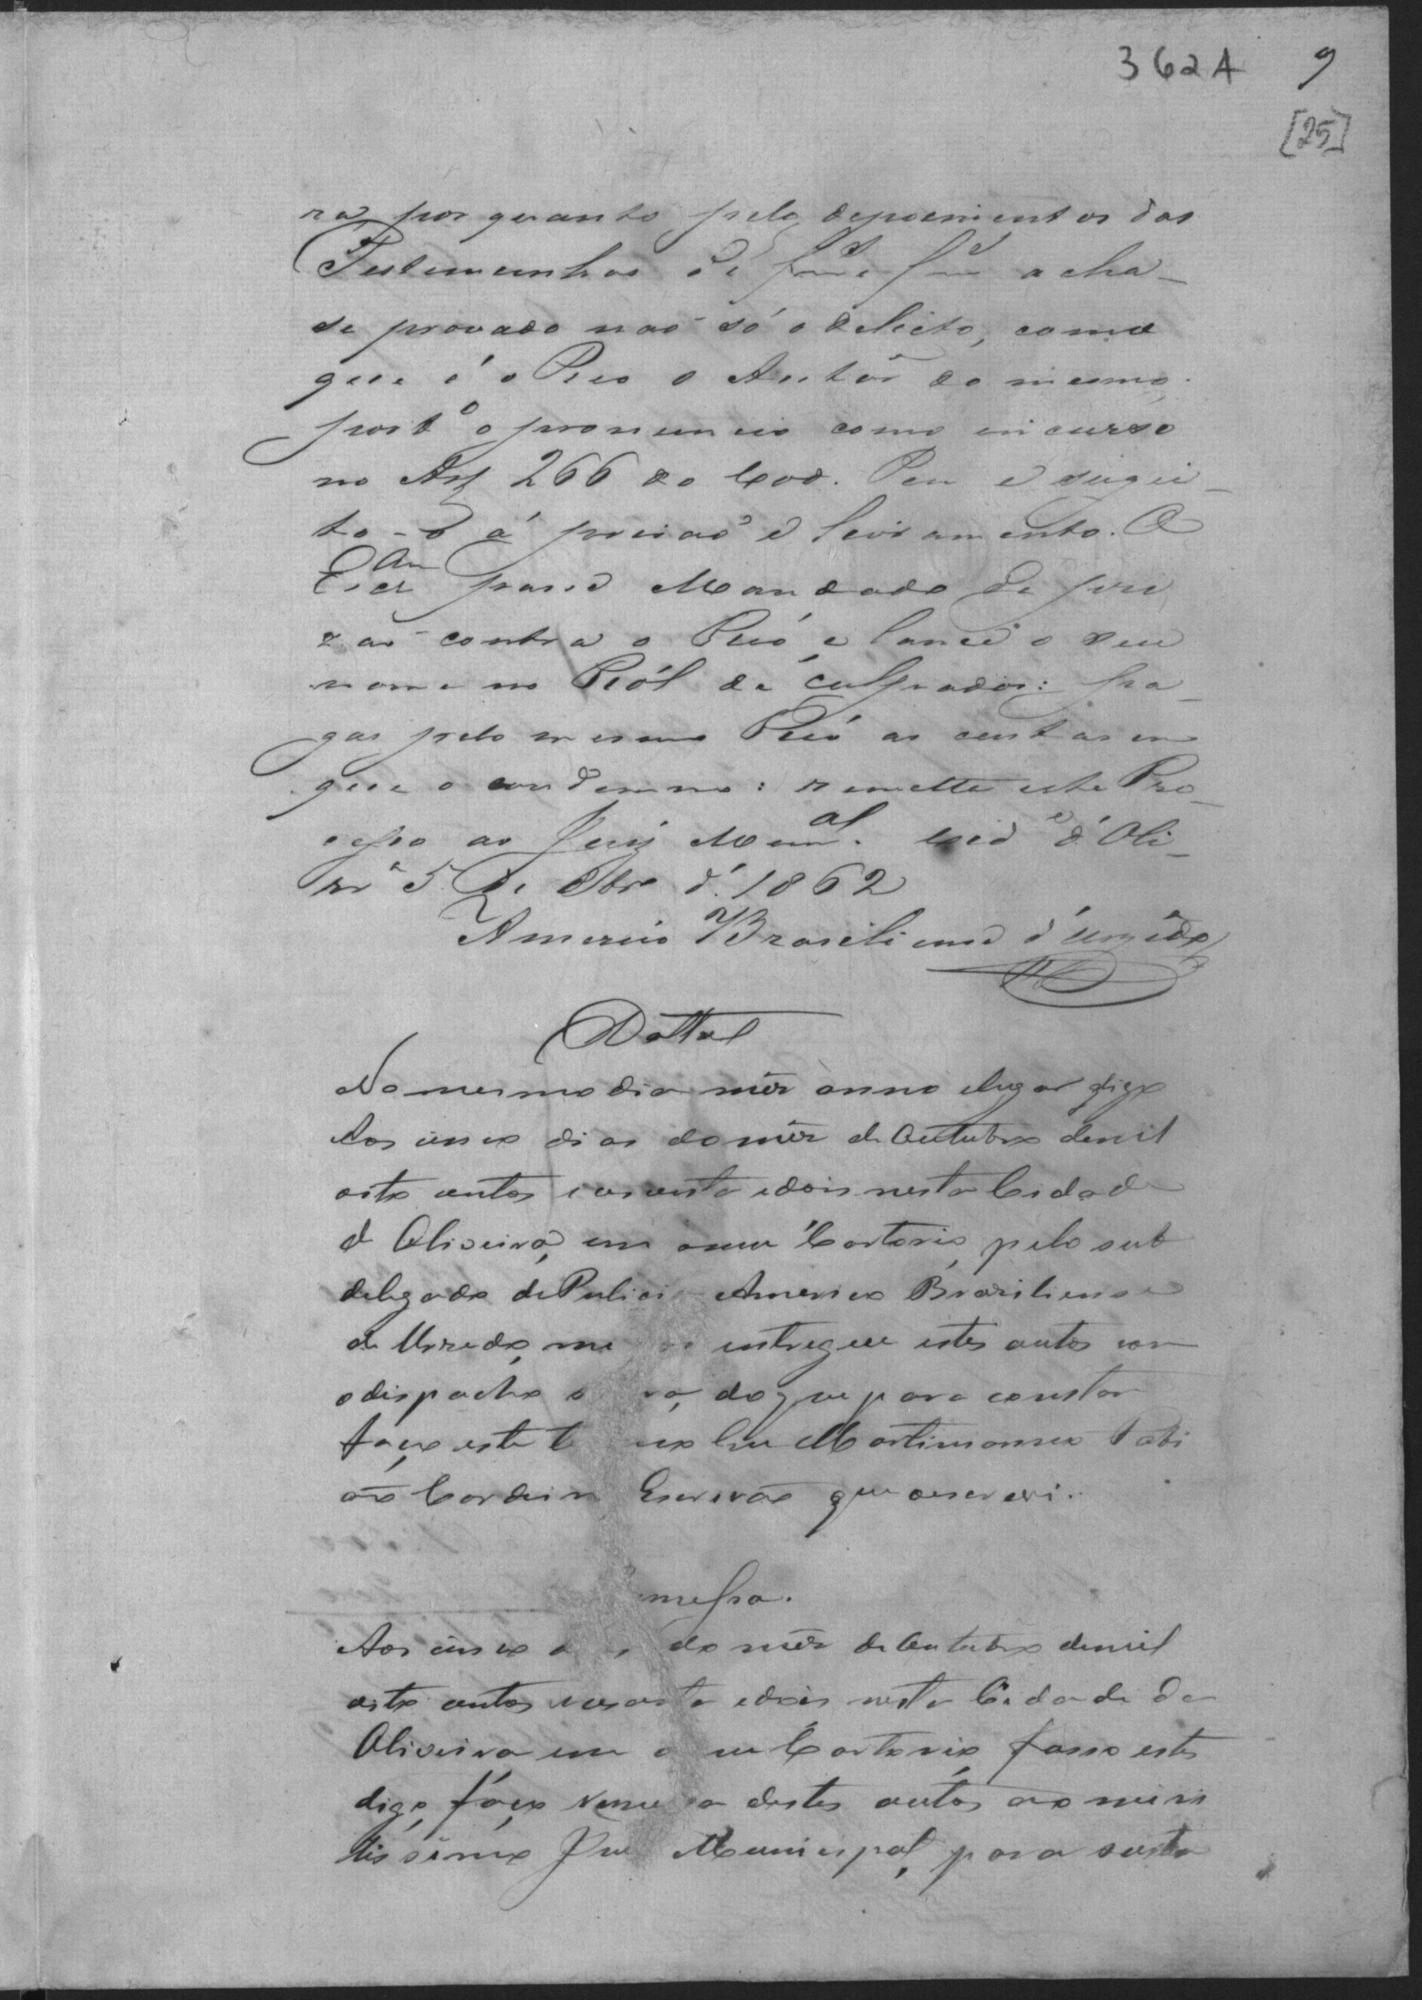 362A 9
[25]
ra porquanto pelo depoimentos das
Testemunhas de f e f acha-
se provado naõ só o delicto, como
que é o Reo o Autôr do mesmo.
port.º o pronuncio como incurso
no Art 266 do Cod. Pen e sugei-
to-o á prizaõ e livramento. O
Escr.am passe Mandado de pri
zaõ contra o Reó, e lance o seu
nome no Ról de culpados: pa-
gas pelo mesmo Reó as custas em
que o condemno: remetta este Pro-
cesso ao Juiz Mun.al. Cid.e d'Oli-
vr.a 5 de 8br.o d'.1862
Americo Braziliense d'Urzêdo
Datta
No mesmo dia mêz anno elugar digo
Aos cinco dias do mêz de Outubro demil
oito centos e sesenta edois nesta Cidade
de Oliveira, em omeu Cartorio, pelo sub
delegado de Policia Americo Braziliense
de Urzedo, me entregue estes autos com
odispacho do que para constar
faço este Eu Martimianno
Cordeiro Escrivão que oescrevi.
messa.
Aos cinco do mêz de Outubro demil
oito centos sesenta edois nesta Cidade de
Oliveira em o eu Cartorio, fasso este
digo, fáço remessa destes autos ao miri
tissimo Juiz Municipal, para susten